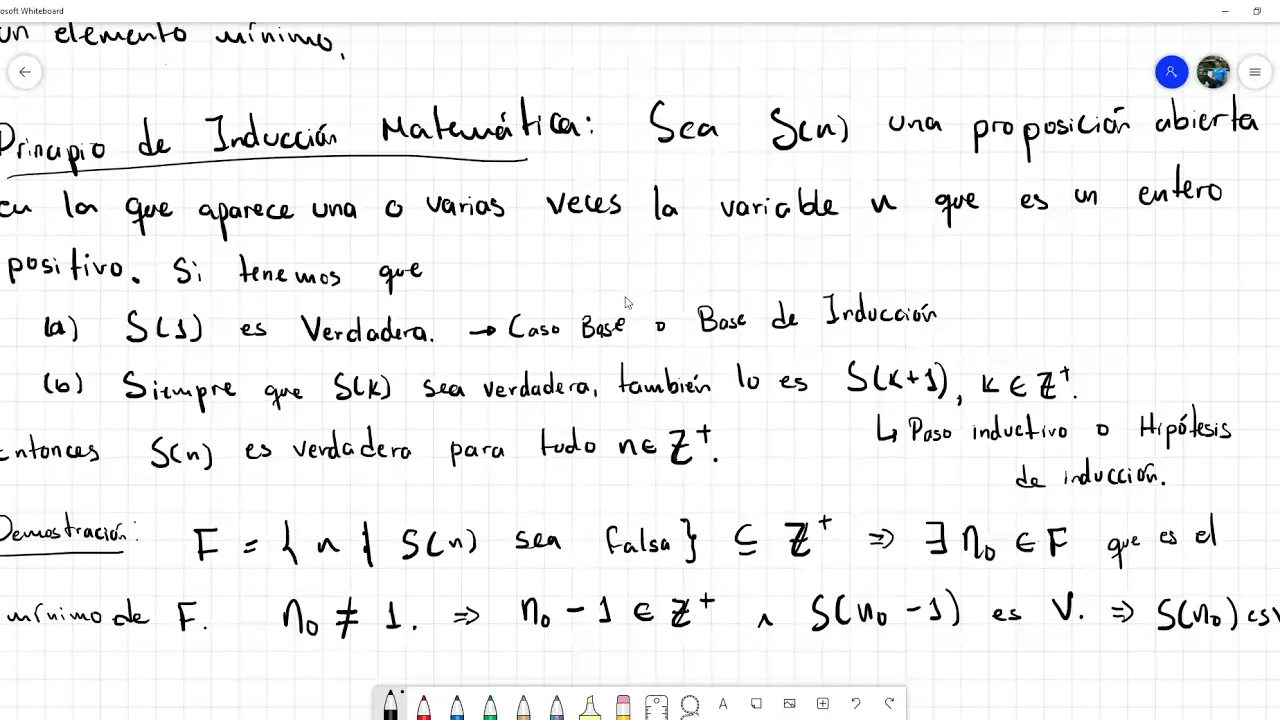 osoft Whiteboard
un elemento mínimo.
Principio de Inducción Matemática: Sea S(n) una proposición abierta
en la que aparece una o varias veces la variable n que es un entero
positivo. Si tenemos que
(a) S(1) es Verdadera. → Caso Base o Base de Inducción
(b) Siempre que S(k) sea verdadera, también lo es S(k+1), k ∈ Z⁺.
↳ Paso inductivo o Hipótesis
Entonces S(n) es verdadera para todo n ∈ Z⁺.
de inducción.
Demostración: F = { n | S(n) sea falsa} ⊆ Z⁺ ⇒ ∃ n₀ ∈ F que es el
mínimo de F. n₀ ≠ 1. ⇒ n₀ - 1 ∈ Z⁺ ∧ S(n₀ - 1) es V. ⇒ S(n₀) es V